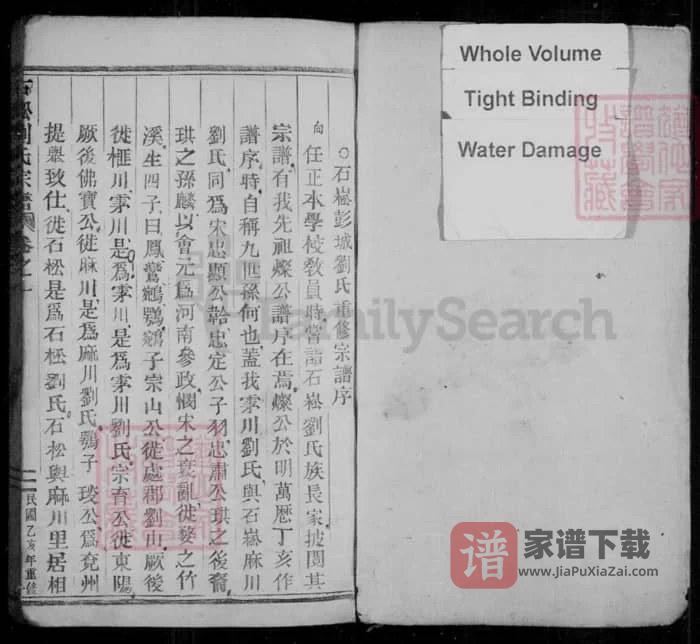 Whole Volume
Tight Binding
Water Damage
○石崧彭城劉氏重修宗譜序
向任正本學校敎員時嘗詣石崧劉氏族長家披閱其
宗譜有我先祖燦公譜序在焉燦公於明萬曆丁亥作
譜序時自稱九世孫何也蓋我家川劉氏與石崧麻川
劉氏同爲宋忠顯公韐忠定公子羽忠肅公珙之後裔
珙之孫麟以會元爲河南參政憫宋之衰亂徙婺之竹
溪生四子曰鳳鸞鵷鶚鵷子宗山公徙處郡劉山厥後
徙樞川家川是爲家川劉氏宗育公徙東陽
厥後佛寶公徙麻川是爲麻川劉氏鶚子琰公爲兗州
提舉致仕徙石松是爲石松劉氏石松與麻川里居相
石崧劉氏宗譜
卷之一
民國乙亥年重修
FamilySearch
譜
家谱下载
www.JiaPuXiaZai.com